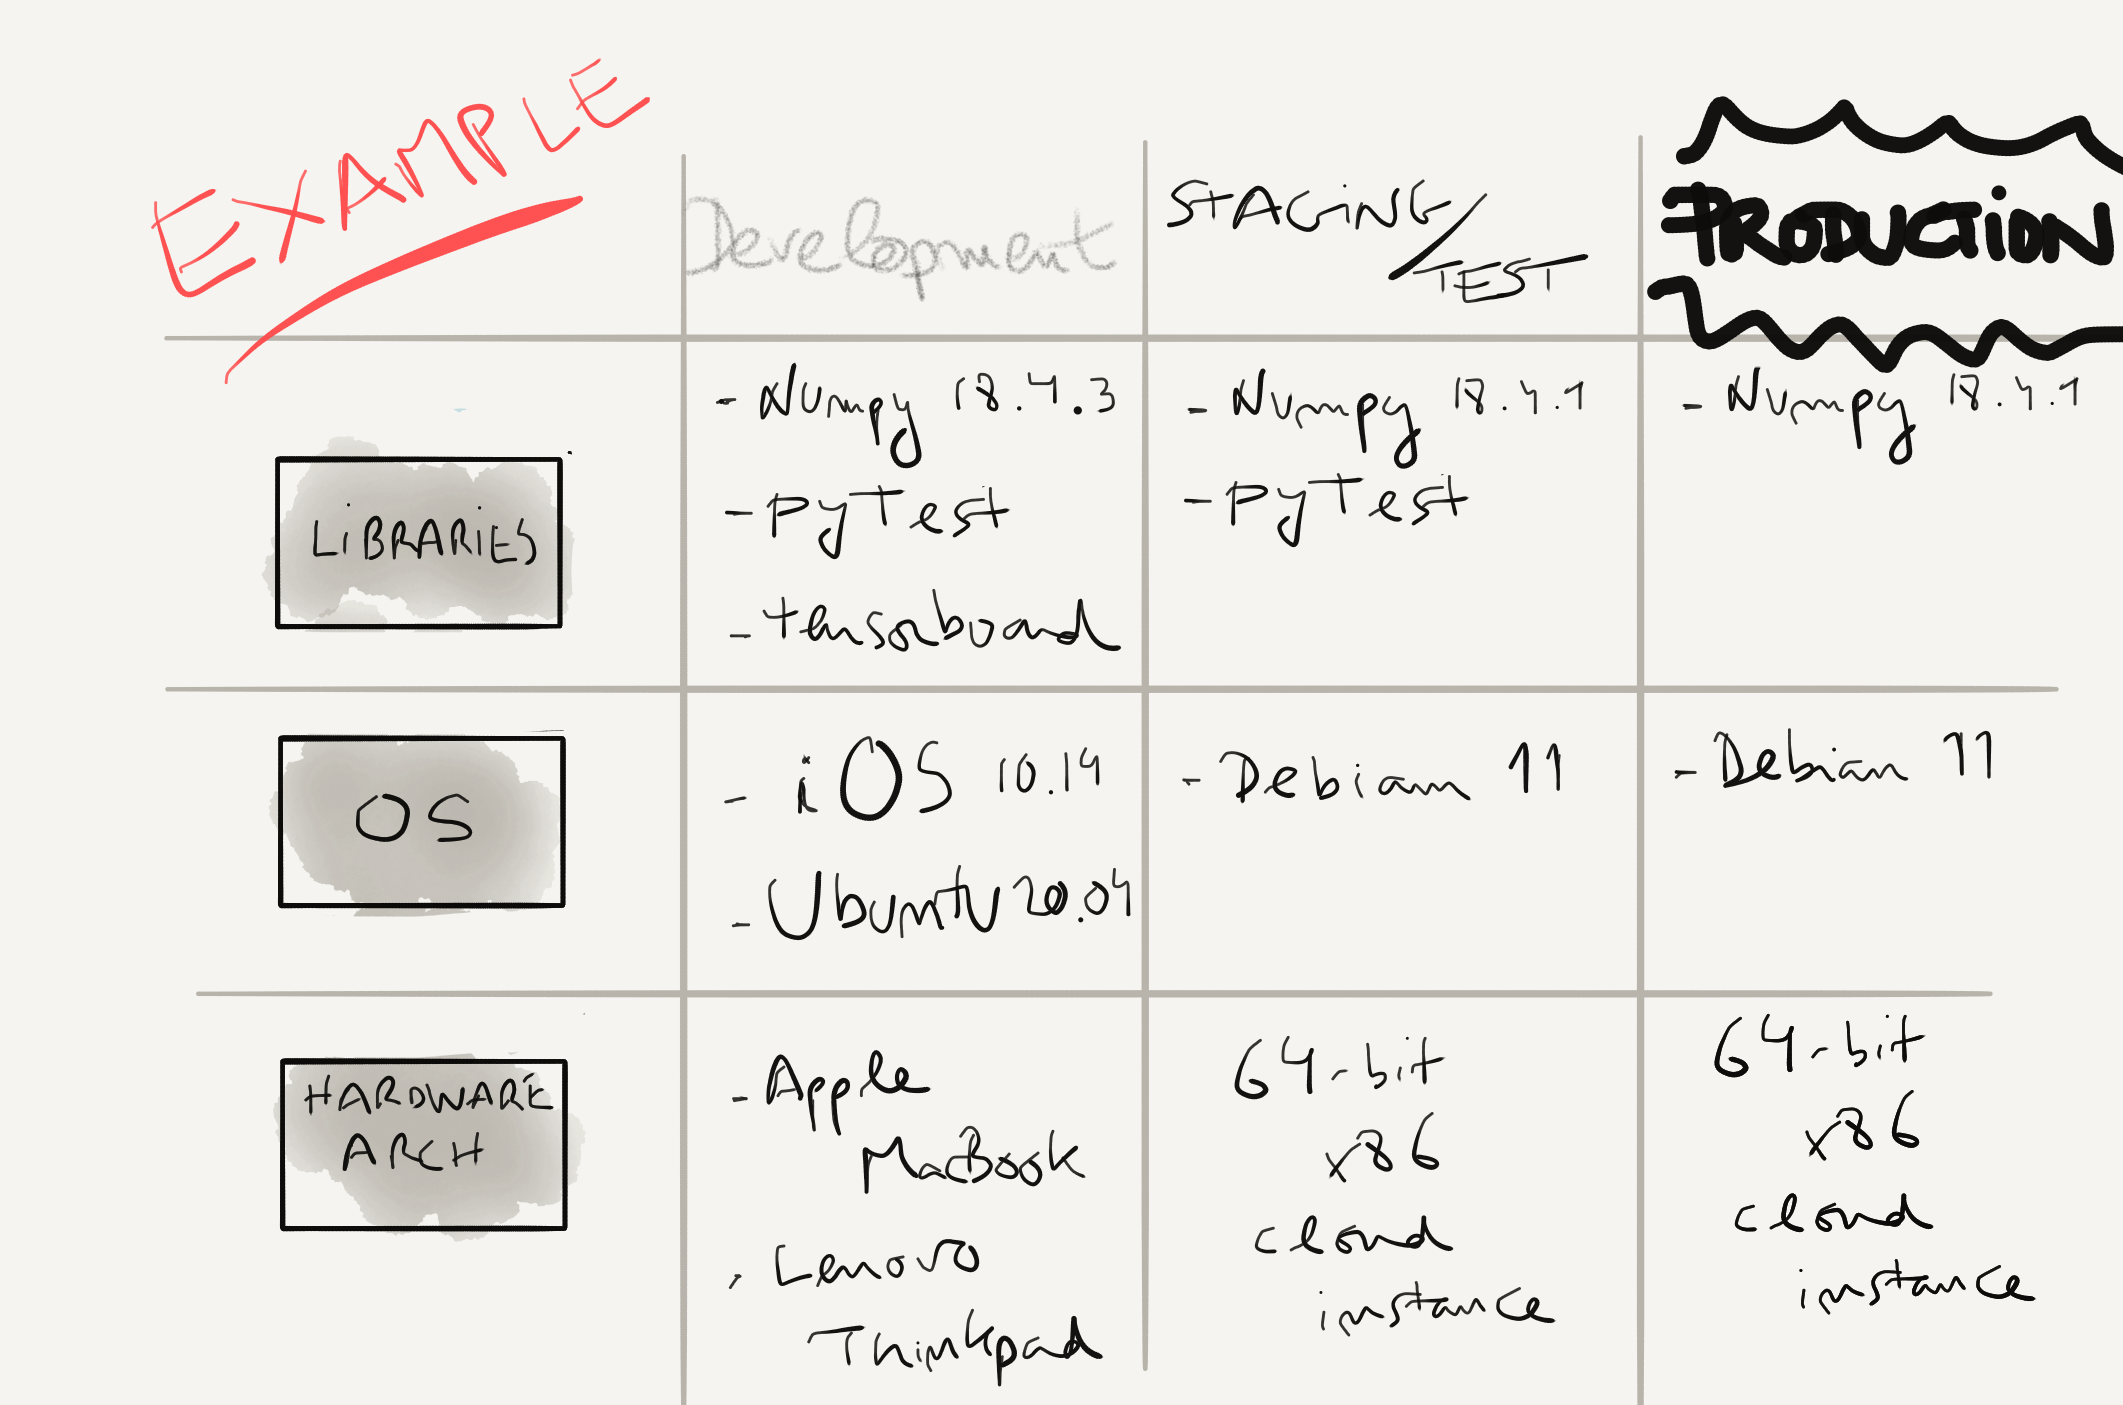 EXAMPLE
Development
STAGING/
TEST
PRODUCTION
LIBRARIES
- Numpy 18.4.3
- PyTest
- tensorboard
- Numpy 18.4.1
- PyTest
- Numpy 18.4.1
OS
- iOS 10.14
- Ubuntu 20.04
- Debian 11
- Debian 11
HARDWARE
ARCH
- Apple
MacBook
- Lenovo
Thinkpad
64-bit
x86
cloud
instance
64-bit
x86
cloud
instance